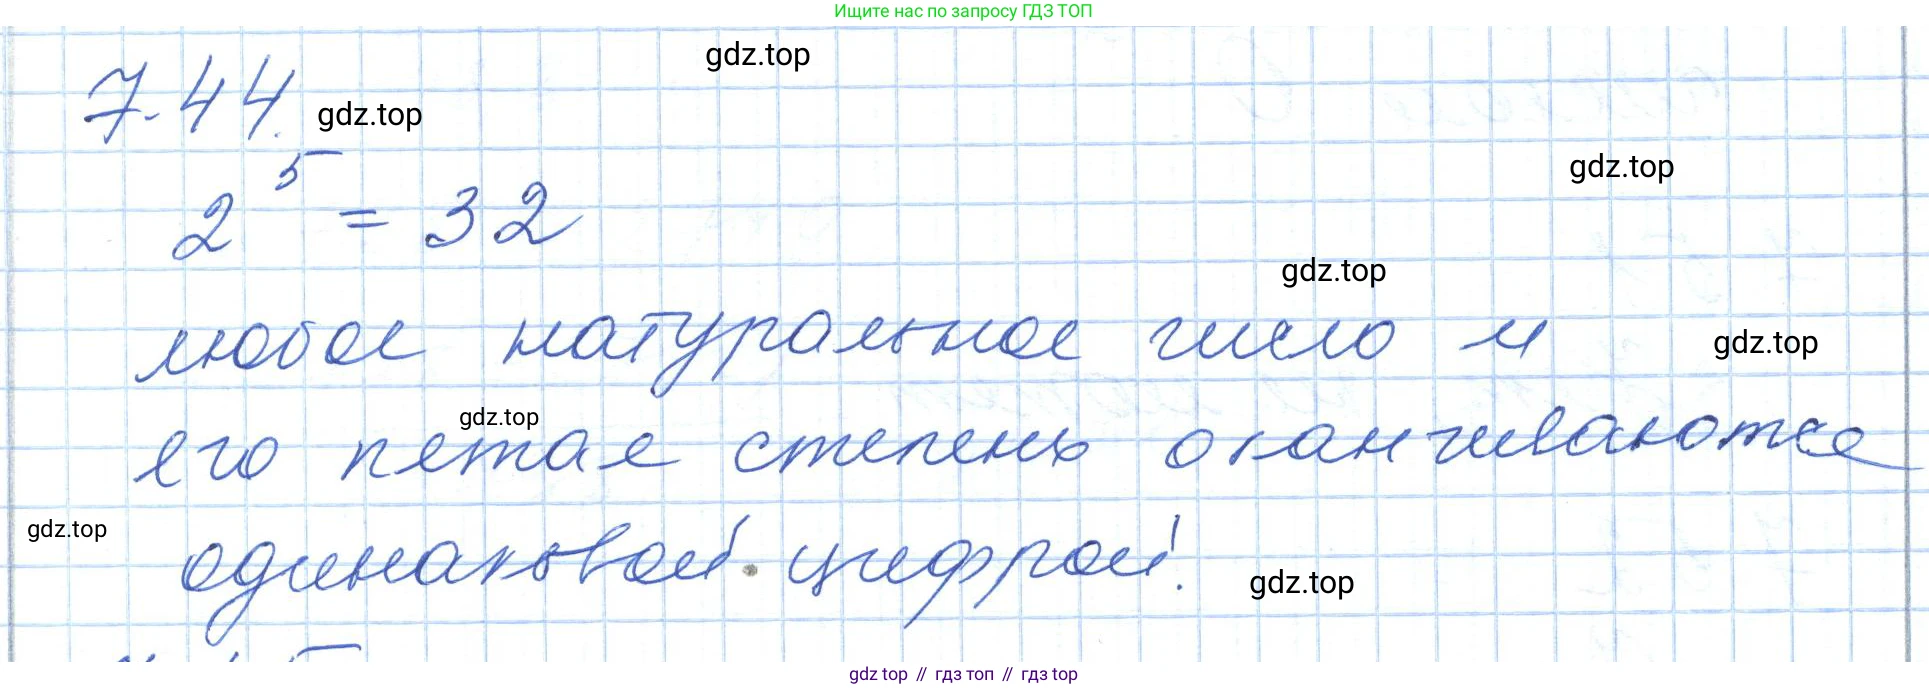 Ищите нас по запросу ГДЗ ТОП
gdz.top
7.44. gdz.top
gdz.top
2⁵ = 32
gdz.top
любое натуральное число и gdz.top
gdz.top
его петая степень оканчиваются
gdz.top
одинаковой цифрой. gdz.top
gdz top // гдз топ // гдз top